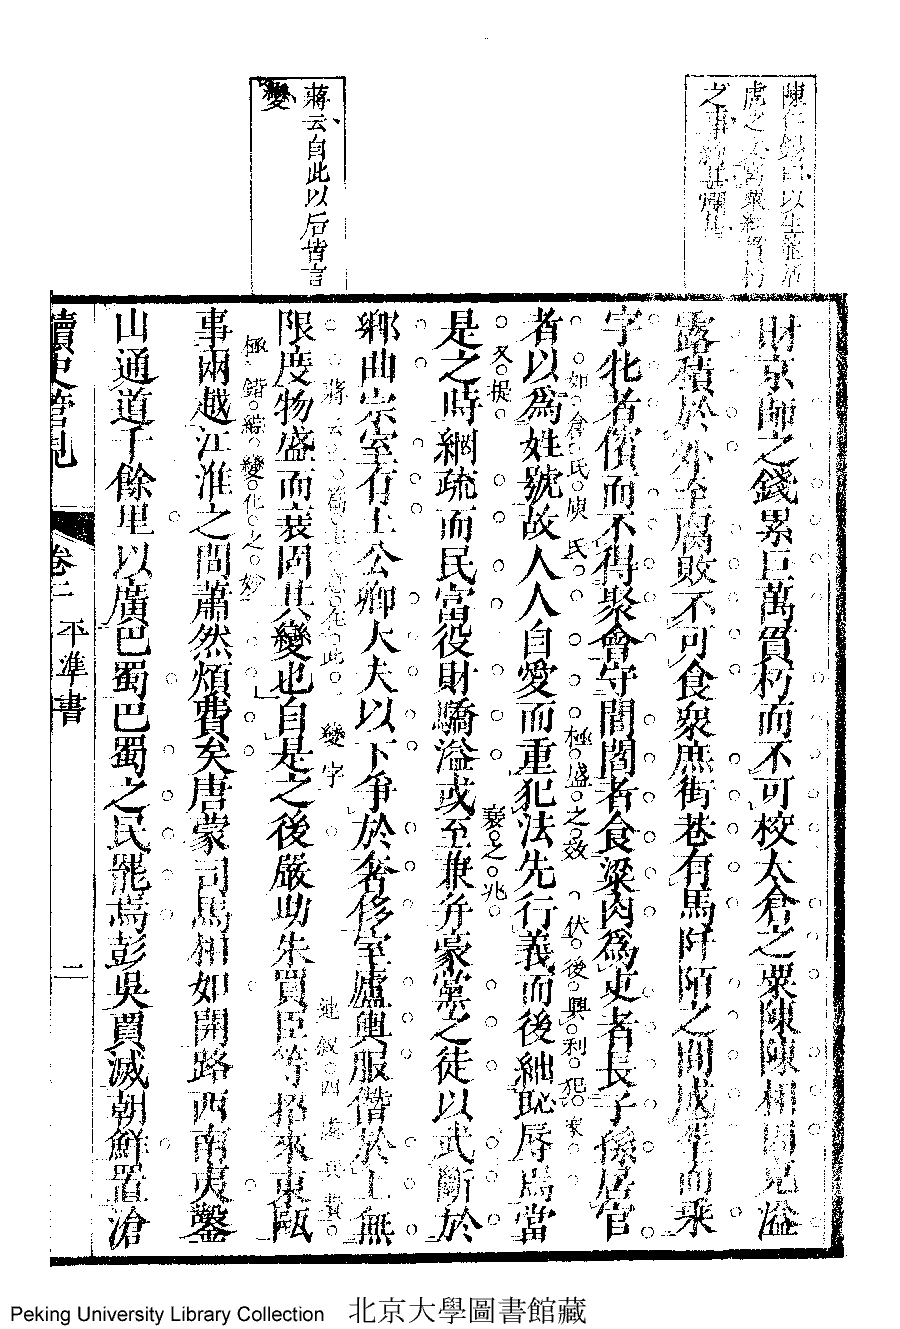 陳仁錫曰以生龍活
虎之文寫粟紅貫朽
之事
蔣云自此以后皆言
變
財京師之錢累巨萬貫朽而不可校太倉之粟陳陳相因充溢
露積於外至腐敗不可食衆庶街巷有馬阡陌之間成羣而乘
字牝者儐而不得聚會守閭閻者食粱肉爲吏者長子孫居官
如倉氏庾氏 極盛之效 伏後興利犯
者以爲姓號故人人自愛而重犯法先行義而後絀恥辱焉當
又提 衰之兆
是之時網疏而民富役財驕溢或至兼并豪黨之徒以武斷於
鄉曲宗室有土公卿大夫以下爭於奢侈室廬輿服僭於上無
蔣云 主意在此 變字 連叙四 兵費
限度物盛而衰固其變也自是之後嚴助朱買臣等招來東甌
極錯綜變化之妙
事兩越江淮之間蕭然煩費矣唐蒙司馬相如開路西南夷鑿
山通道千餘里以廣巴蜀巴蜀之民罷焉彭吳賈滅朝鮮置滄
讀史管見 卷二 平準書 二
Peking University Library Collection 北京大學圖書館藏